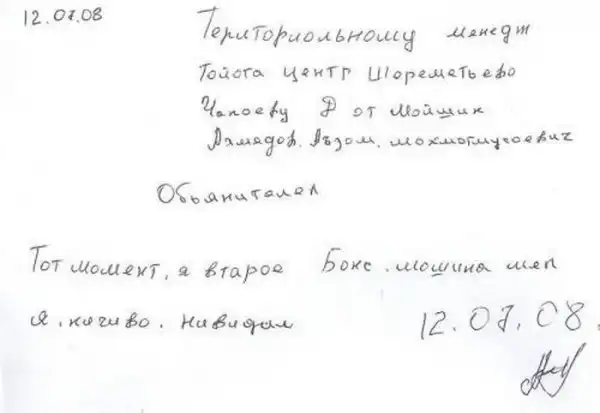 12.07.08
Териториольному менедж
Тойота центр Шореметьево
Чапоеву Д от Мойшик
Ахмедов. Аъзом. мохмотмусоевич
Обьянителел
Тот момент, я второе Бокс. мошина меп
я. ничиво. нивидал
12.07.08.